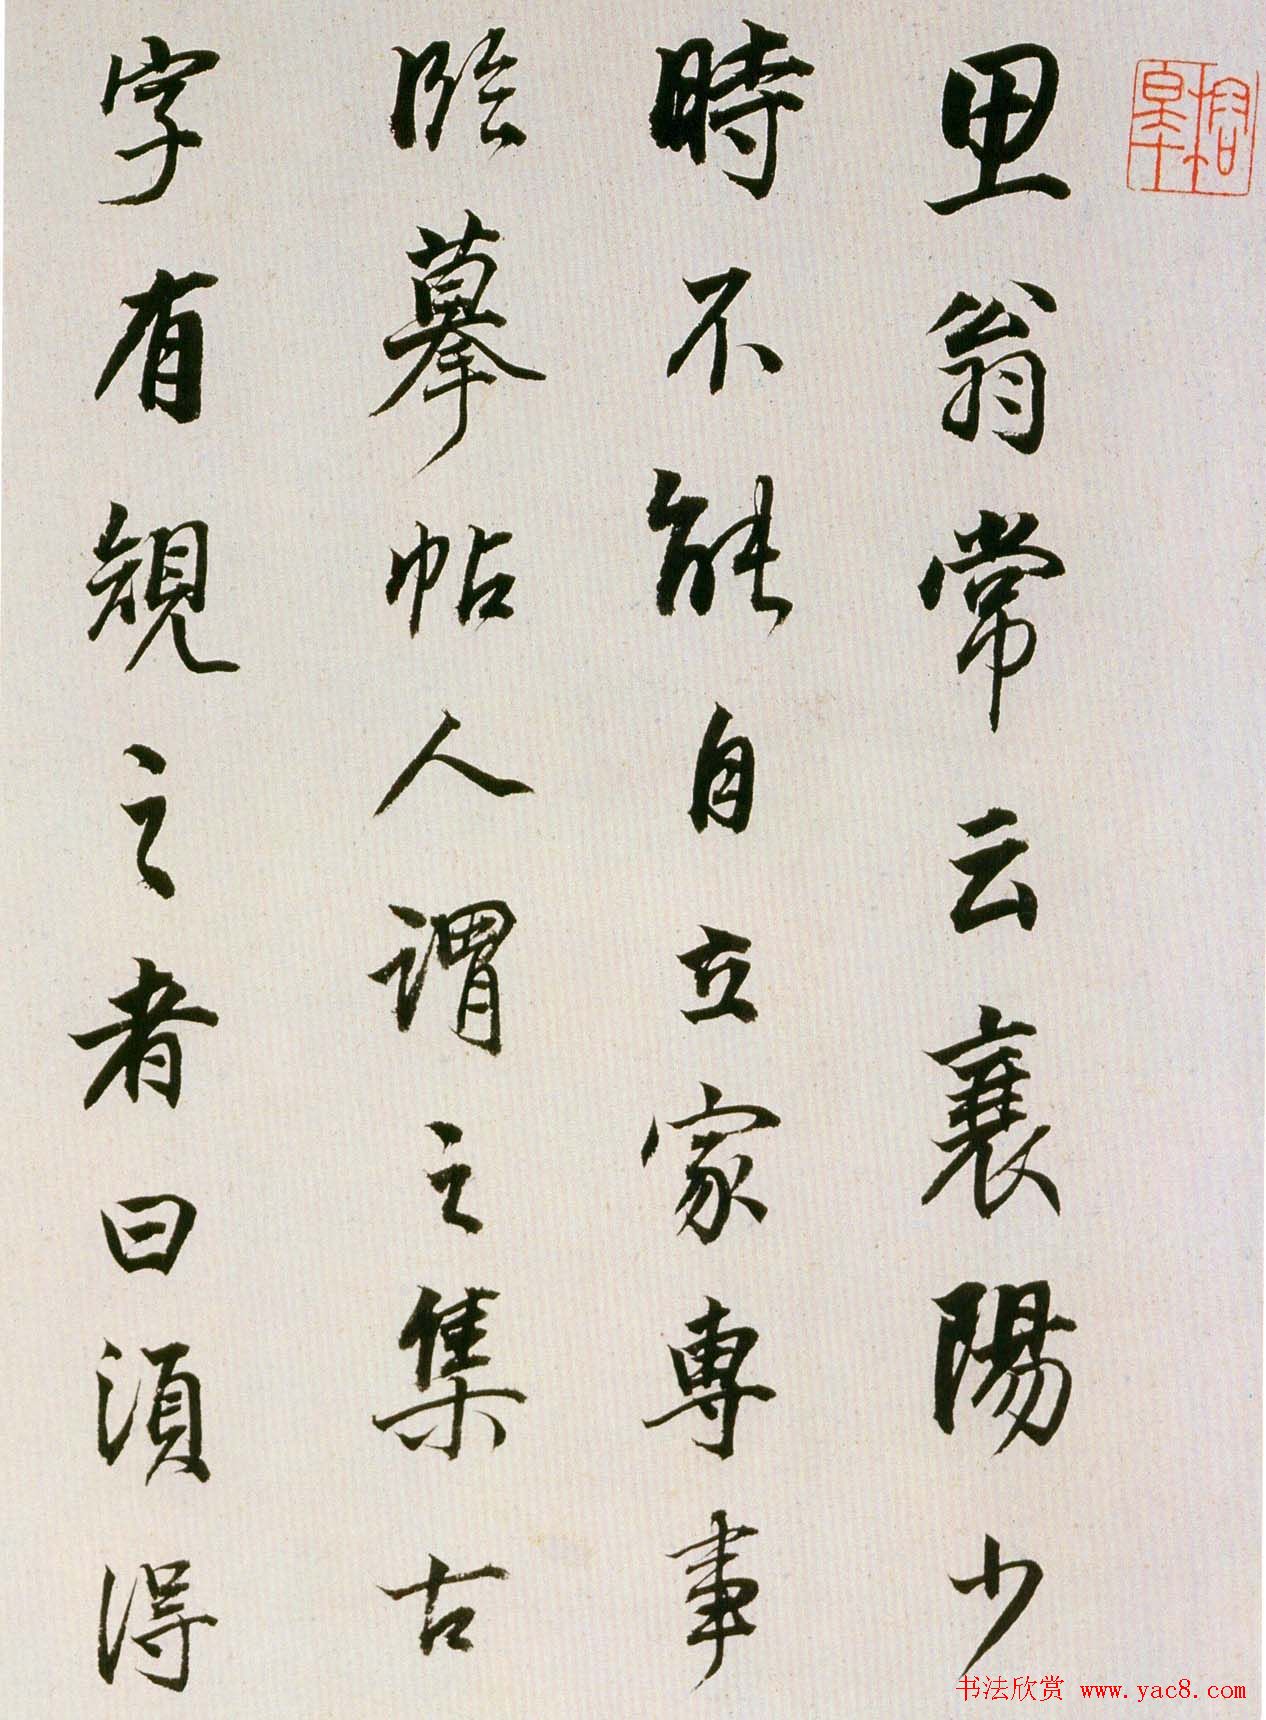 思翁常云襄陽少
時不能自立家專事
臨摹帖人謂之集古
字有規之者曰須得
书法欣赏 www.yac8.com